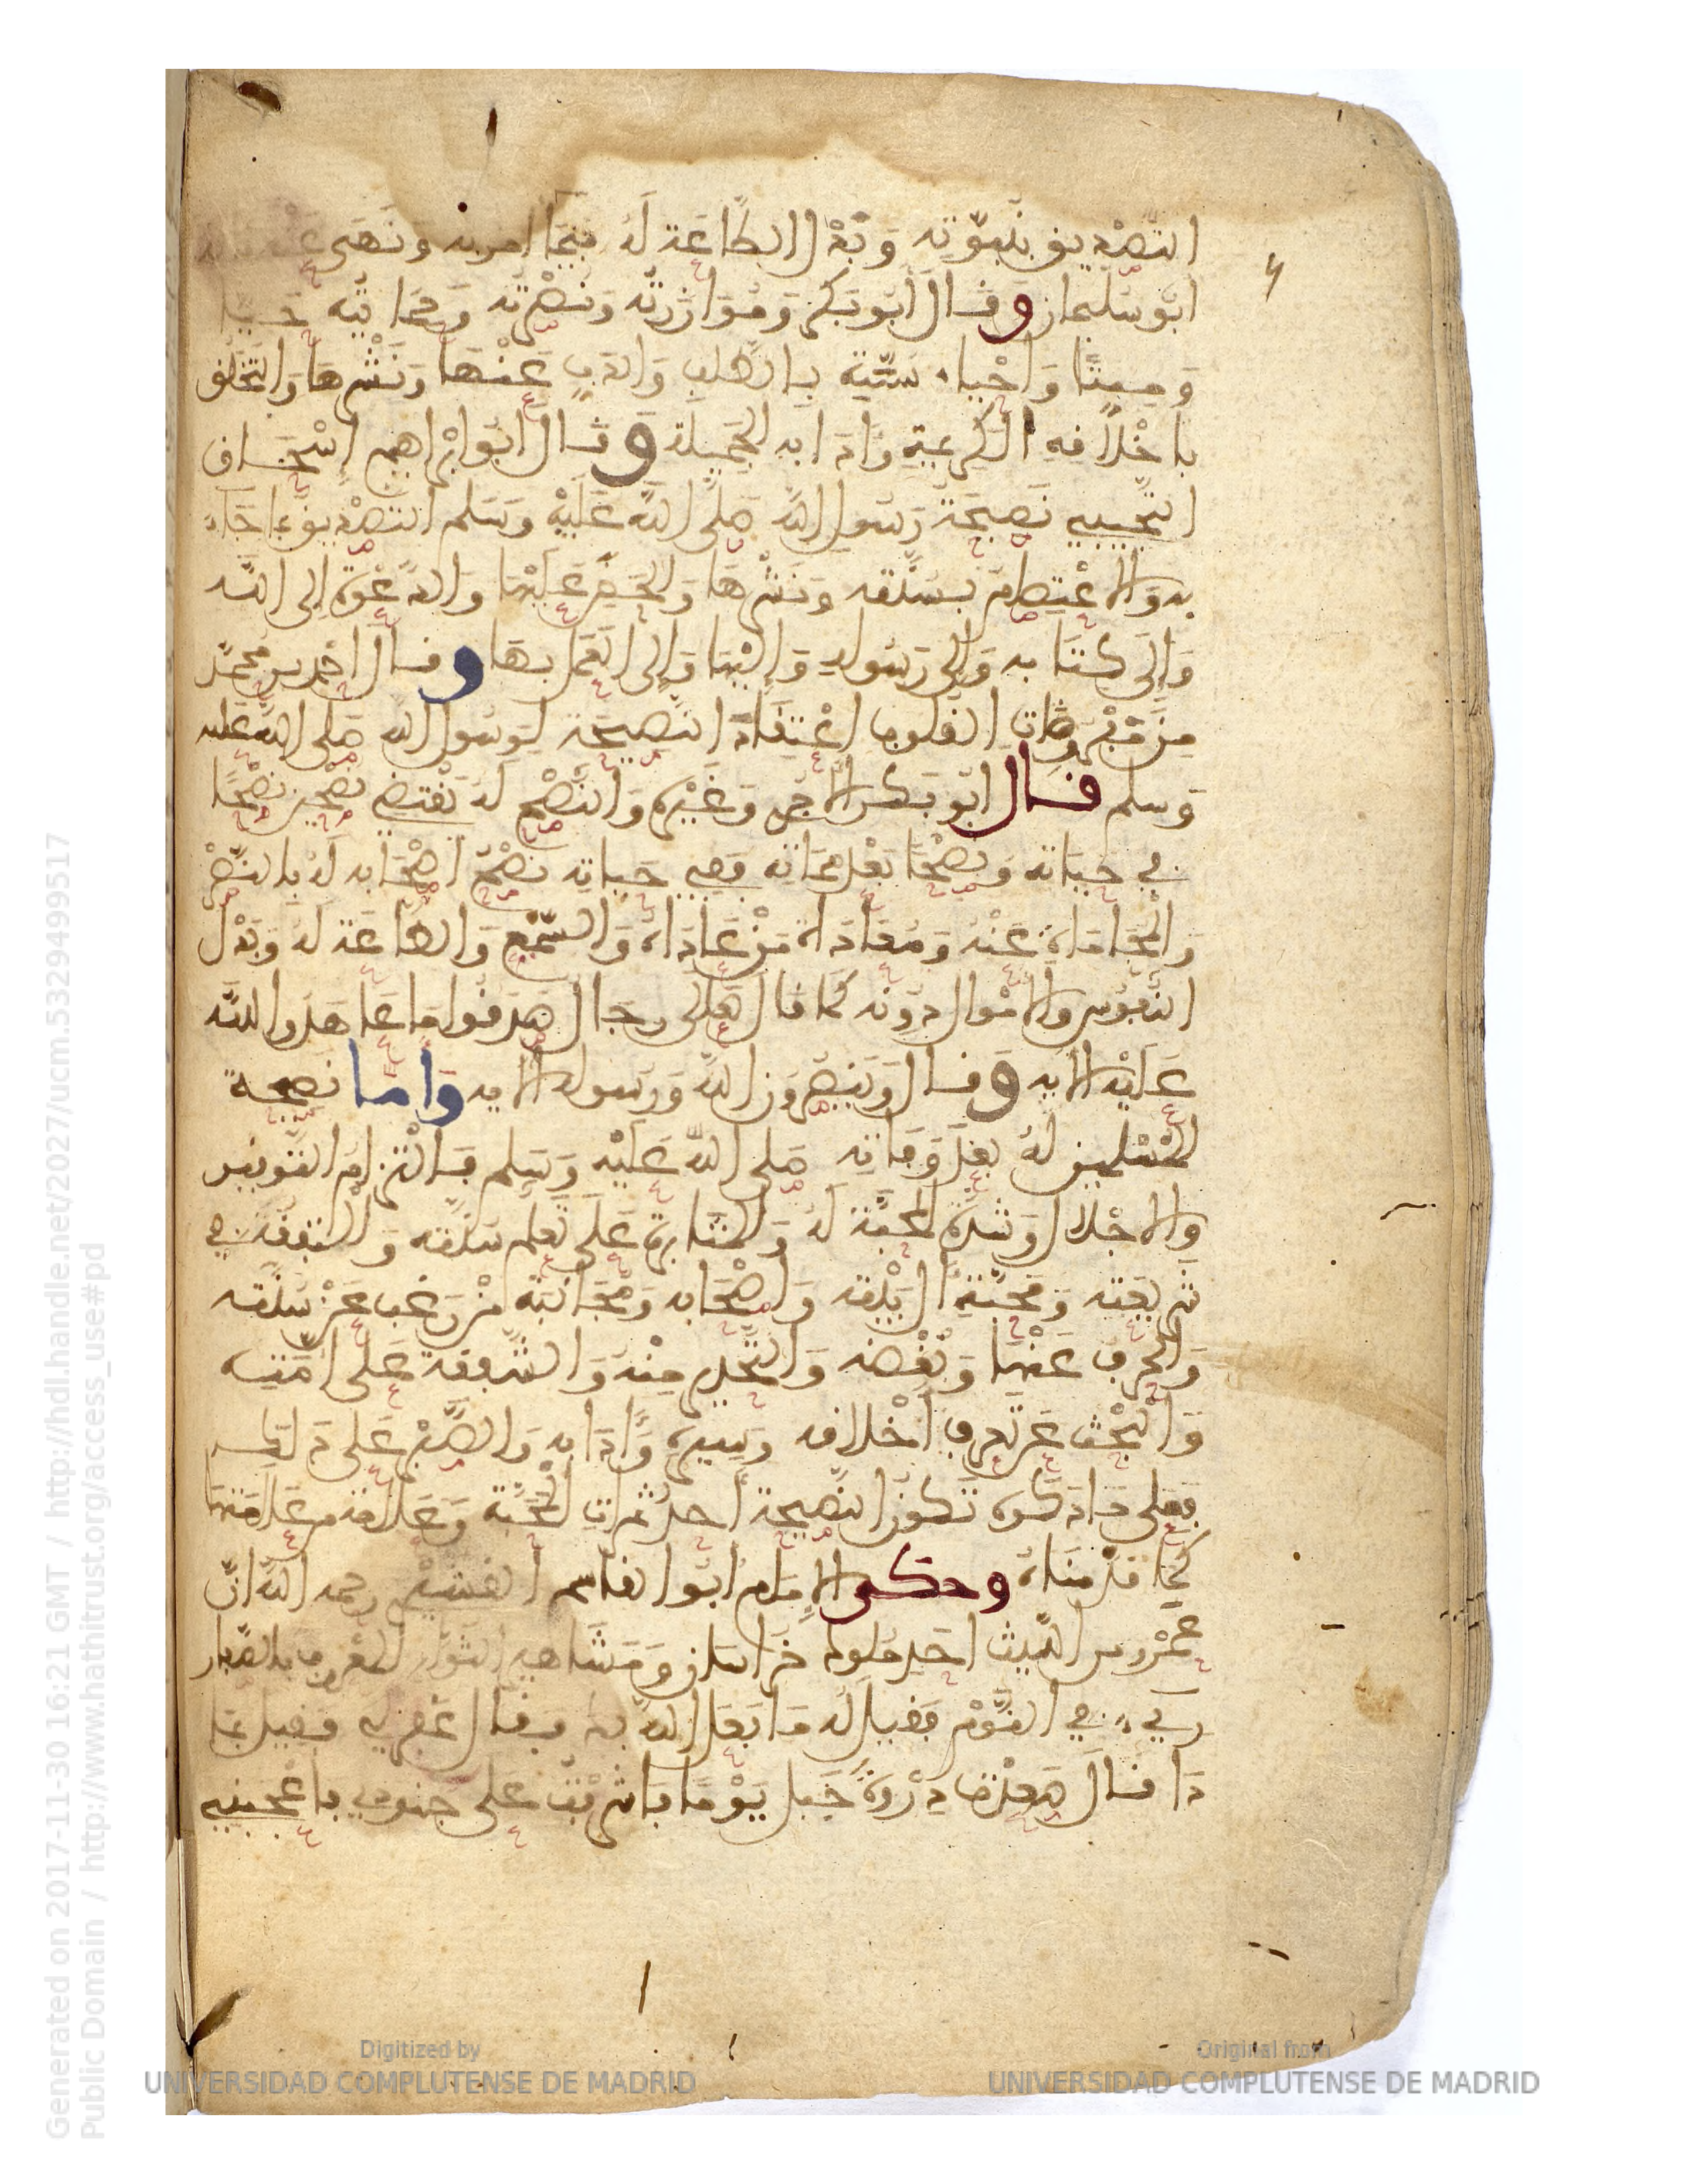 التصديق بنبوته وبذل الطاعة له فيما امر به ونهى عنه قاله
ابو سليمان وقال أبو بكر وموازرته ونصرته وحمايته حيا
وميتا واحياء سنته بالطلب والذب عنها ونشرها والتخلق
باخلاقه الكريمة وادابه الجميلة وقال ابو ابراهيم اسحاق
التجيبي نصيحة رسول الله صلى الله عليه وسلم التصديق بما جاء
به والاعتصام بسنته ونشرها والحض عليها والدعوة الى الله
والى كتابه والى رسوله واليها والى العمل بها وقال احمد بن محمد
من مفروضات القلوب اعتقاد النصيحة لرسول الله صلى الله عليه
وسلم قال ابو بكر الاجري وغيره والنصح له يقتضي نصحين نصحا
في حياته ونصحا بعد مماته ففي حياته نصح اصحابه له بالنصر
والمحاماة عنه ومعاداة من عاداه والسمع والطاعة له وبذل
النفوس والاموال دونه كما قال تعالى رجال صدقوا ما عاهدوا الله
عليه الاية وقال وينصرون الله ورسوله الاية واما نصيحة
المسلمين له بعد وفاته صلى الله عليه وسلم فالتزام التوقير
والاجلال وشدة المحبة له والمثابرة على تعلم سنته والتفقه في
شريعته ومحبة ال بيته واصحابه ومجانبة من رغب عن سنته
وانحرف عنها وبغضه والتحذير منه والشفقة على امته
والبحث عن تعرف اخلاقه وسيره وادابه والصبر على ذلك
فعلى ما ذكره تكون النصيحة احدى ثمرات المحبة وعلامة من علاماتها
كما قدمناه وحكى الامام ابو القاسم القشيري رحمه الله ان
عمرو بن الليث احد ملوك خراسان ومشاهير الثوار المعروف بالصفار
ريء في النوم فقيل له ما فعل الله بك فقال غفر لي فقيل بما
ذا قال صعدت ذروة جبل يوما فاشرفت على جنودي فاعجبتني
Generated on 2017-11-30 16:21 GMT / http://hdl.handle.net/2027/ucm.5329499517
Public Domain / http://www.hathitrust.org/access_use#pd
Digitized by
UNIVERSIDAD COMPLUTENSE DE MADRID
Original from
UNIVERSIDAD COMPLUTENSE DE MADRID